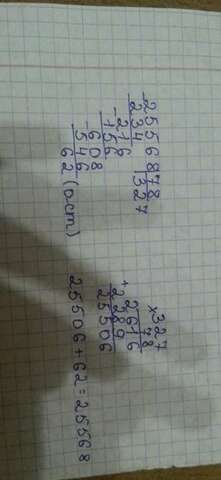 -25568 78
234 327
-216
156
-608
546
62 (ост)
×327
78
+2616
2289
25506
25506+62=25568